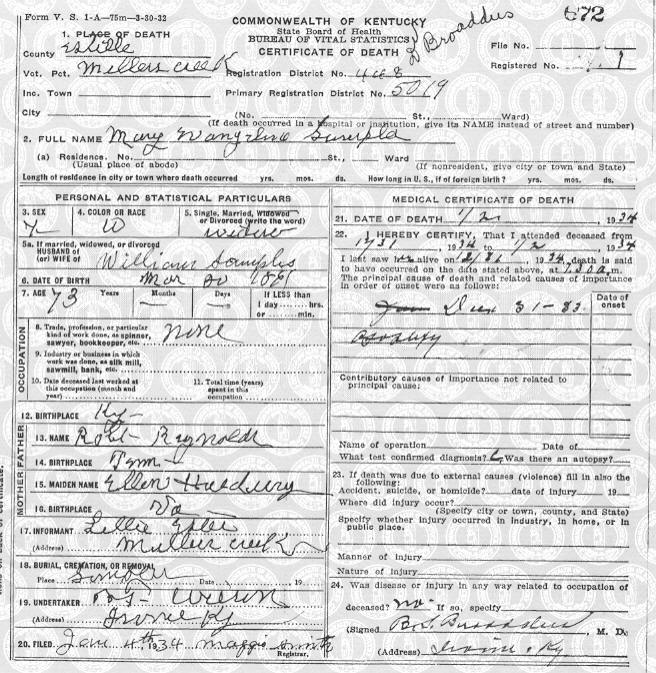 Form V. S. 1-A—75m—3-30-32
672
COMMONWEALTH OF KENTUCKY
State Board of Health
BUREAU OF VITAL STATISTICS
CERTIFICATE OF DEATH
Broaddus
File No.
Registered No. 1
1. PLACE OF DEATH
County Estille
Vot. Pct. Millers creek
Registration District No. 468
Inc. Town
Primary Registration District No. 5019
City (No. St., Ward)
(If death occurred in a hospital or institution, give its NAME instead of street and number)
2. FULL NAME Mary
(a) Residence. No. St., Ward
(Usual place of abode) (If nonresident, give city or town and State)
Length of residence in city or town where death occurred yrs. mos. ds. How long in U. S., if of foreign birth? yrs. mos. ds.
PERSONAL AND STATISTICAL PARTICULARS
3. SEX
4. COLOR OR RACE W
5. Single, Married, Widowed
or Divorced (write the word)
widow
5a. If married, widowed, or divorced
HUSBAND of
(or) WIFE of William Samples
6. DATE OF BIRTH Mar 20
7. AGE 73 Years Months Days
If LESS than
1 day hrs.
or min.
OCCUPATION
8. Trade, profession, or particular
kind of work done, as spinner,
sawyer, bookkeeper, etc. none
9. Industry or business in which
work was done, as silk mill,
sawmill, bank, etc.
10. Date deceased last worked at
this occupation (month and
year)
11. Total time (years)
spent in this
occupation
12. BIRTHPLACE Ky-
FATHER
13. NAME Robt Reynolds
14. BIRTHPLACE Tenn-
MOTHER
15. MAIDEN NAME Ellen
16. BIRTHPLACE Va
17. INFORMANT Lillie
(Address) Millers creek
18. BURIAL, CREMATION, OR REMOVAL
Place Date 19
19. UNDERTAKER
(Address) Irvine Ky
20. FILED Jan 4th, 1934 Maggie Smith
Registrar.
MEDICAL CERTIFICATE OF DEATH
21. DATE OF DEATH 1/2, 1934
22. I HEREBY CERTIFY, That I attended deceased from
1934 to 1/2, 1934
I last saw alive on 1934, death is said
to have occurred on the date stated above, at 7.30 a. m.
The principal cause of death and related causes of importance
in order of onset were as follows:
Date of
onset
Contributory causes of importance not related to
principal cause:
Name of operation Date of
What test confirmed diagnosis? Was there an autopsy?
23. If death was due to external causes (violence) fill in also the
following:
Accident, suicide, or homicide? date of injury 19
Where did injury occur?
(Specify city or town, county, and State)
Specify whether injury occurred in industry, in home, or in
public place.
Manner of injury
Nature of injury
24. Was disease or injury in any way related to occupation of
deceased? no If so, specify
(Signed Broaddus, M. D.
(Address) Irvine Ky